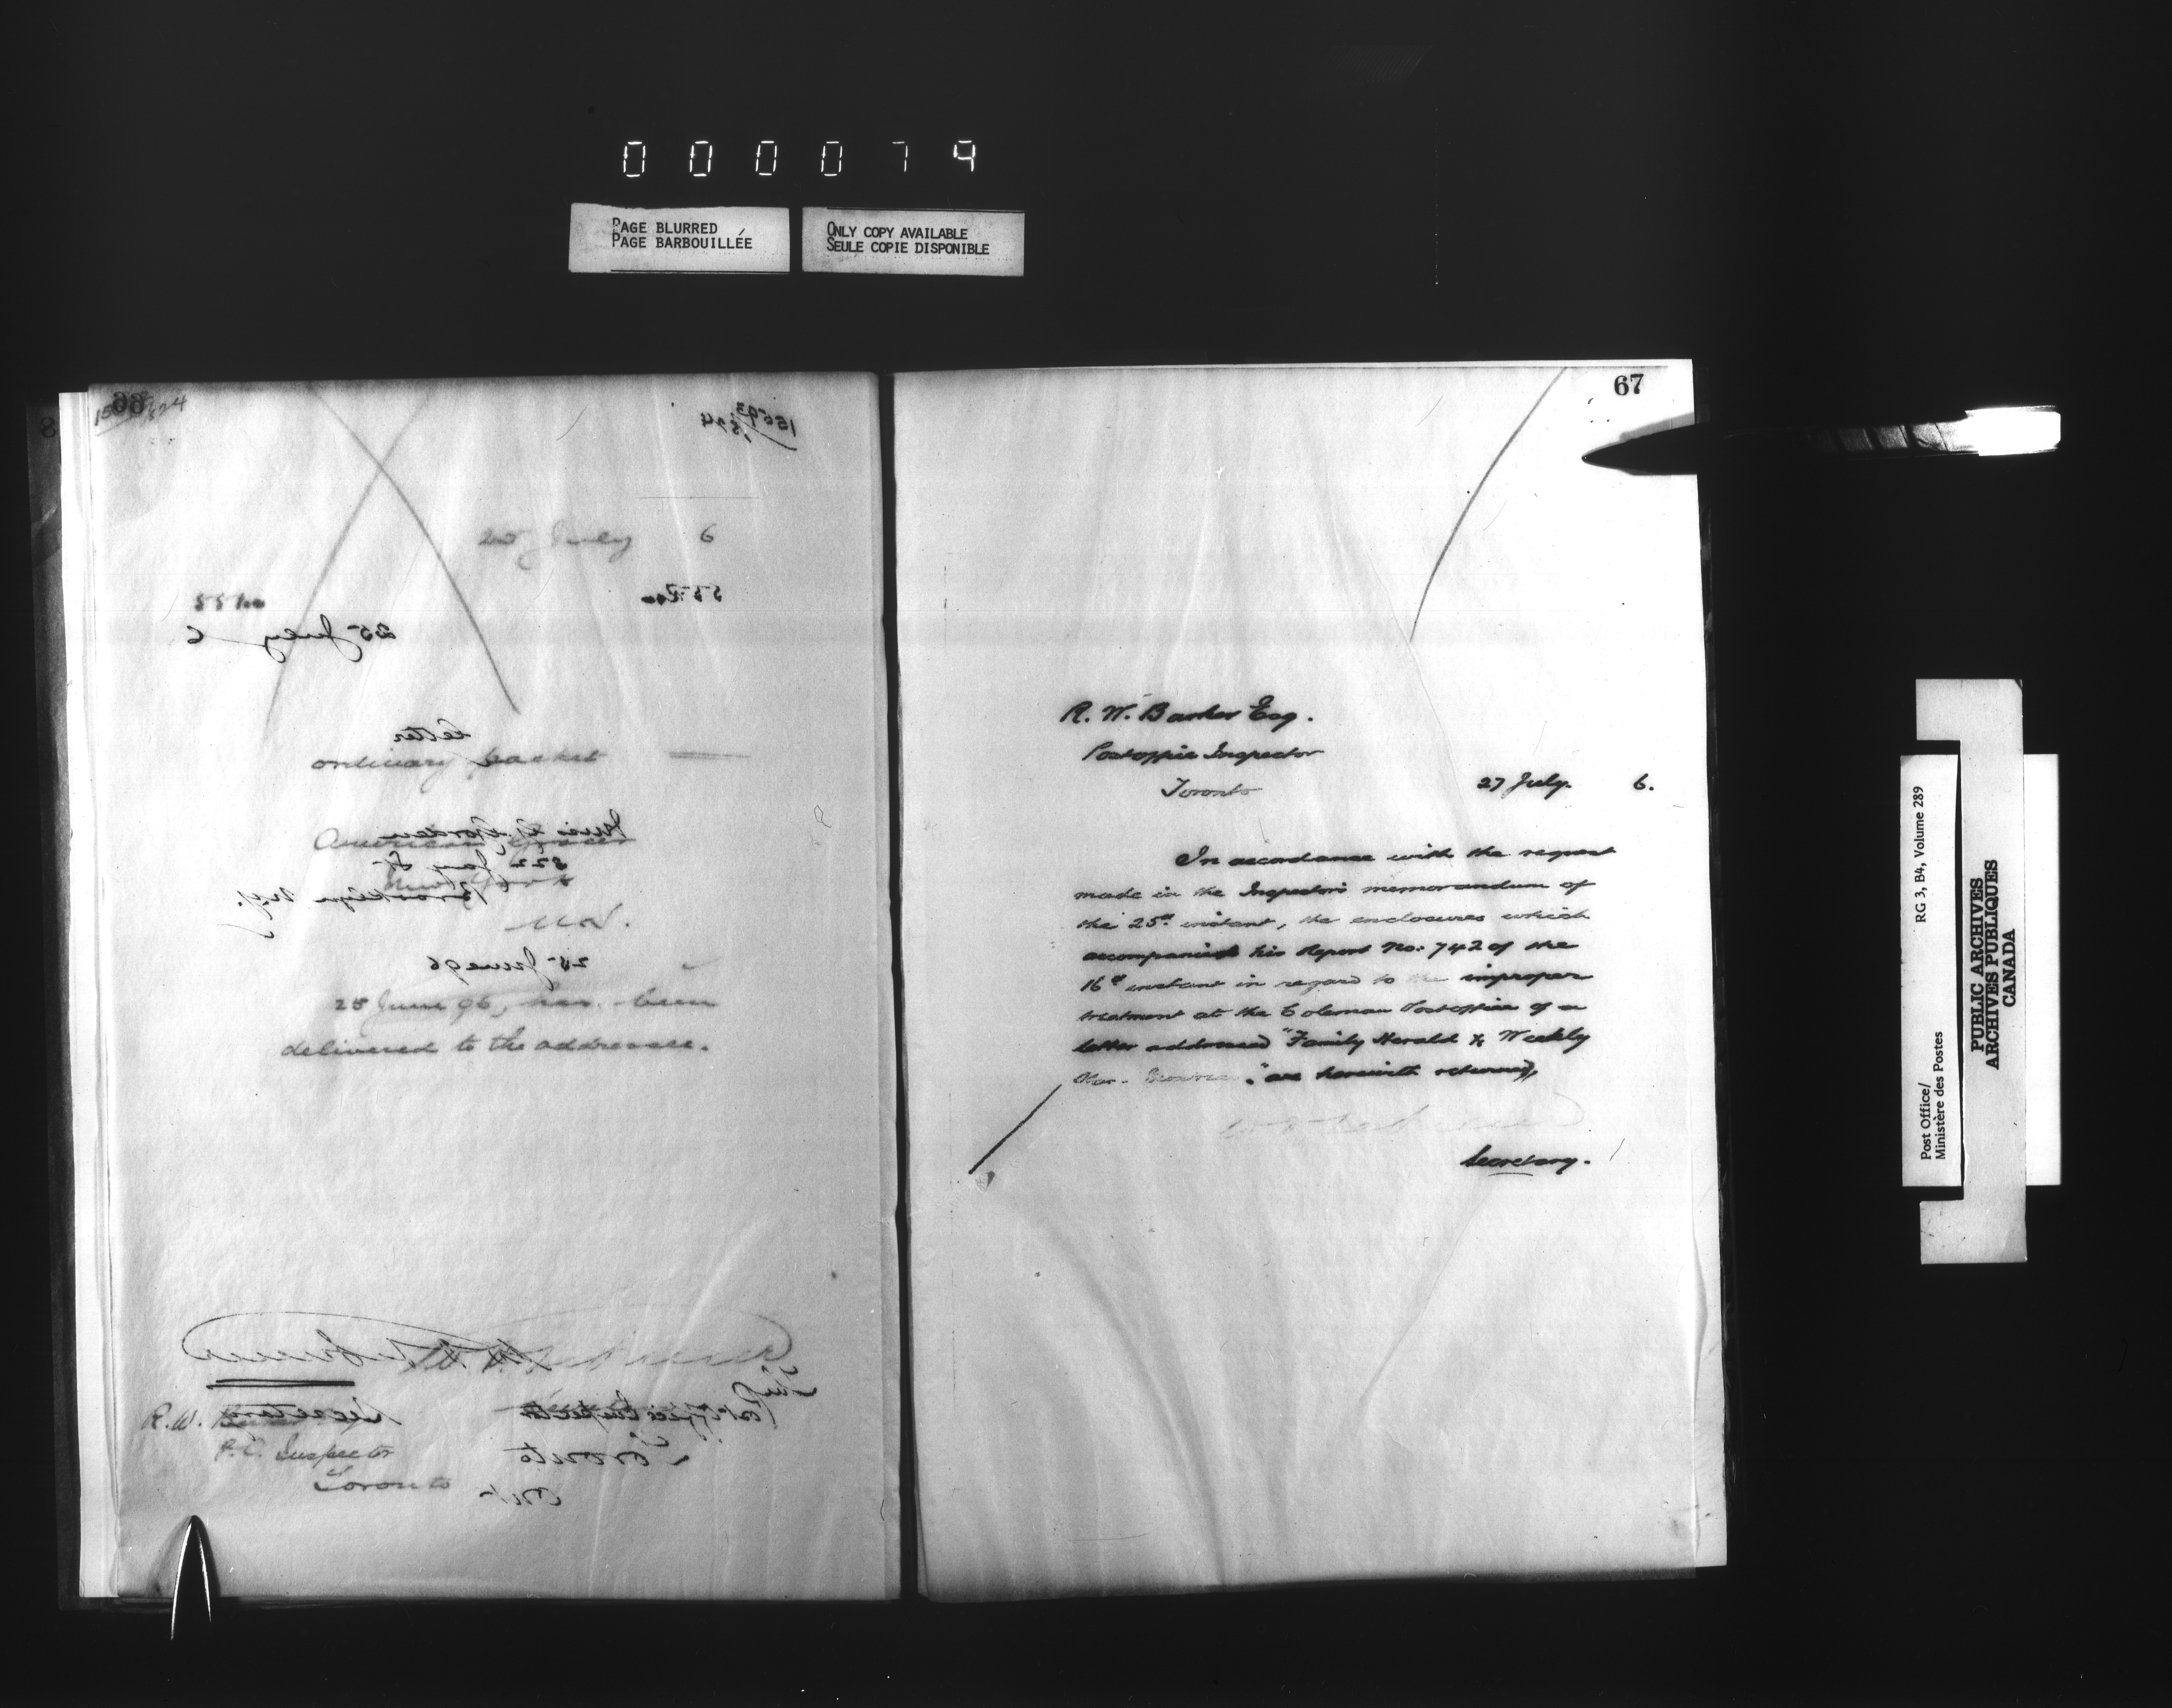 0 0 0 0 7 9
PAGE BLURRED
PAGE BARBOUILLÉE
ONLY COPY AVAILABLE
SEULE COPIE DISPONIBLE
66
25 July 6
ordinary packet
American Grocer
New York
25 June 96, has been
delivered to the addressee.
R. W.
P. O. Inspector
Toronto
25 July 6
Letter
322 Jay St
Brooklyn N.Y.
25 June 96
Secretary
Post Office Inspector
Toronto
Ont
67
R. W. Barker Esq.
Postoffice Inspector
Toronto
27 July. 6.
In accordance with the request
made in the Inspector's memorandum of
the 25th instant, the enclosures which
accompanied his Report No. 742 of the
16th instant in regard to the improper
treatment at the Coleman Postoffice of a
letter addressed "Family Herald & Weekly
Star. Montreal." are herewith returned,
Secretary.
Post Office/
Ministère des Postes
RG 3, B4, Volume 289
PUBLIC ARCHIVES
ARCHIVES PUBLIQUES
CANADA